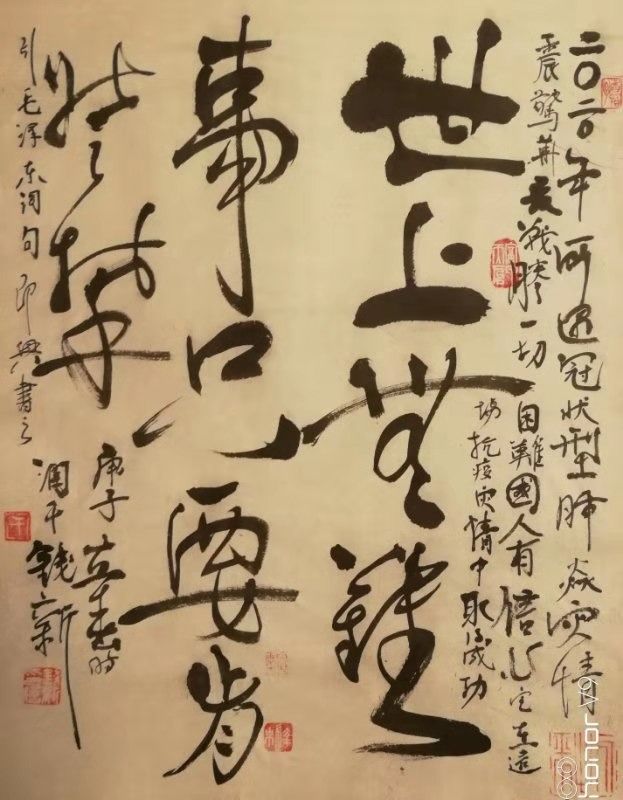 二〇二〇年所遇冠状型肺炎灾情
震驚華夏戰勝一切困難國人有信心定在這
場抗疫灾情中取得成功
世上無難
事只要肯
登攀
庚子立春时
引毛泽东词句即興書之
錢新
honor V9